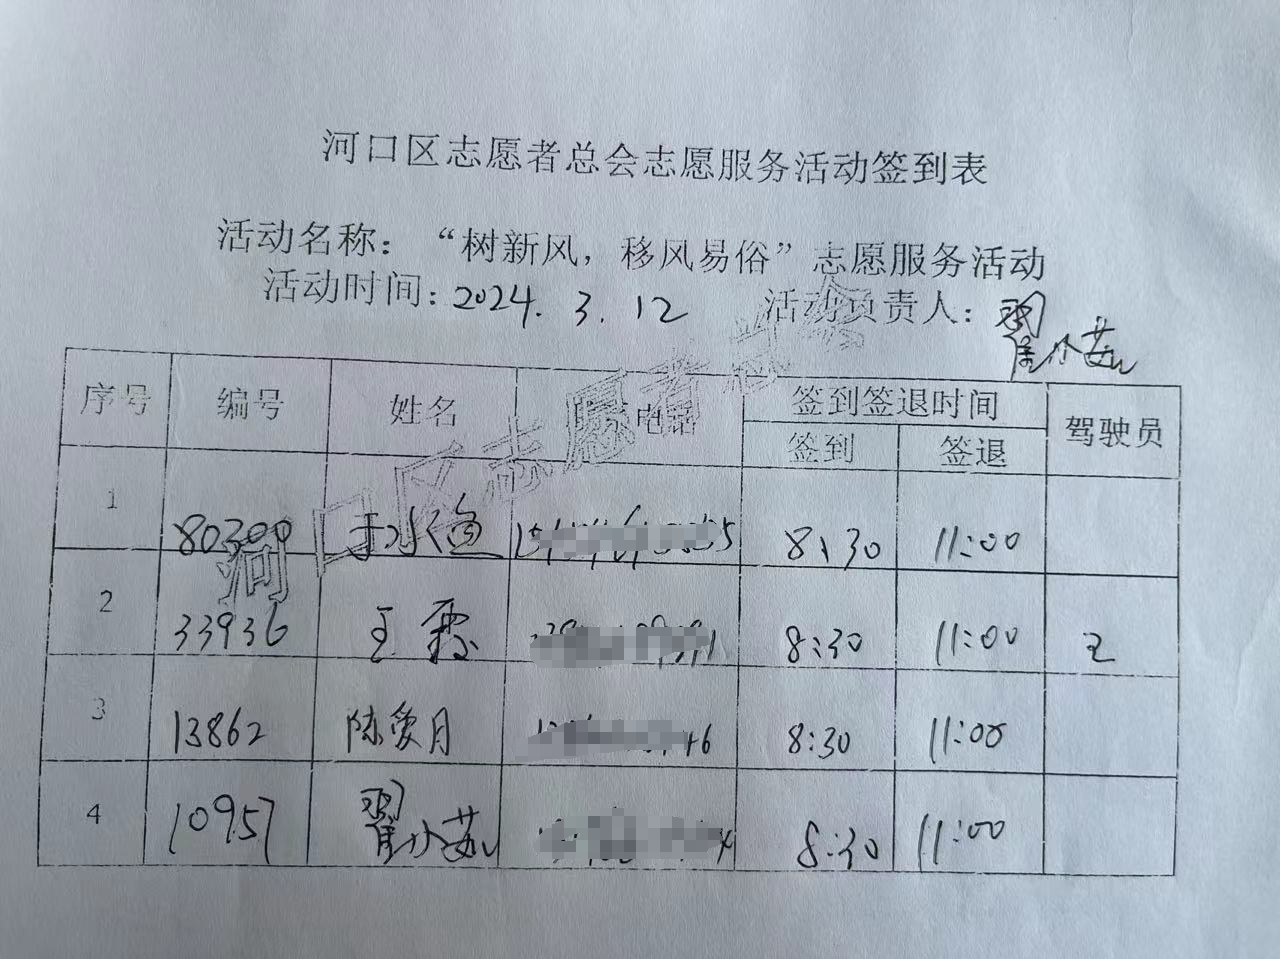 河口区志愿者总会志愿服务活动签到表
活动名称：“树新风，移风易俗”志愿服务活动
活动时间：2024.3.12 活动负责人：翟小茹
序号 编号 姓名 电话 签到签退时间 驾驶员
签到 签退
1 80300 8:30 11:00
2 33936 王霞 8:30 11:00 王
3 13862 陈爱月 8:30 11:00
4 10957 翟小茹 8:30 11:00
河口区志愿者总会